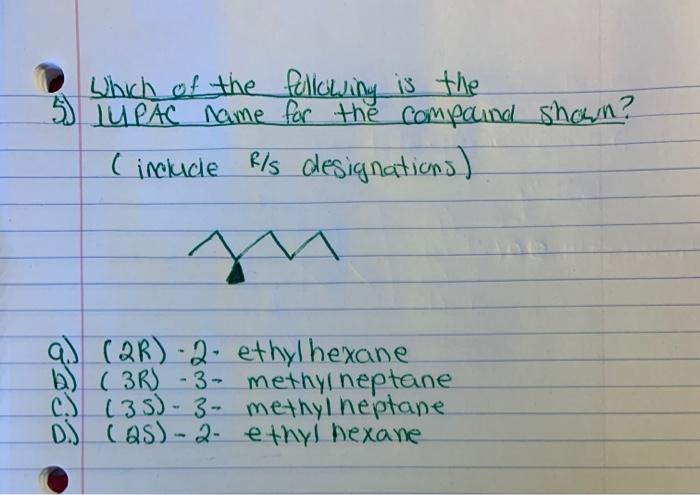 5) Which of the following is the
IUPAC name for the compound shown?
(include R/S designations)
a.) (2R) - 2 - ethylhexane
b) (3R) - 3 - methylneptane
C.) (3S) - 3 - methylheptane
D.) (2S) - 2 - ethyl hexane